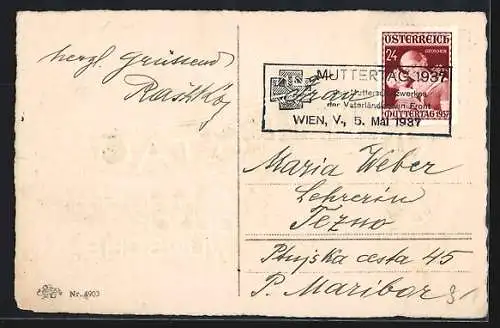 herzl. Grüssend
Raškoj
ÖSTERREICH
24
GROSCHEN
MUTTERTAG 1937
MUTTERTAG 1937
Mutterschutzwerkes
der Vaterländischen Front
WIEN, V., 5. Mai 1937
Frau
Maria Weber
Lehrerin
Tezno
Ptujska cesta 45
P. Maribor
Nr. 4903